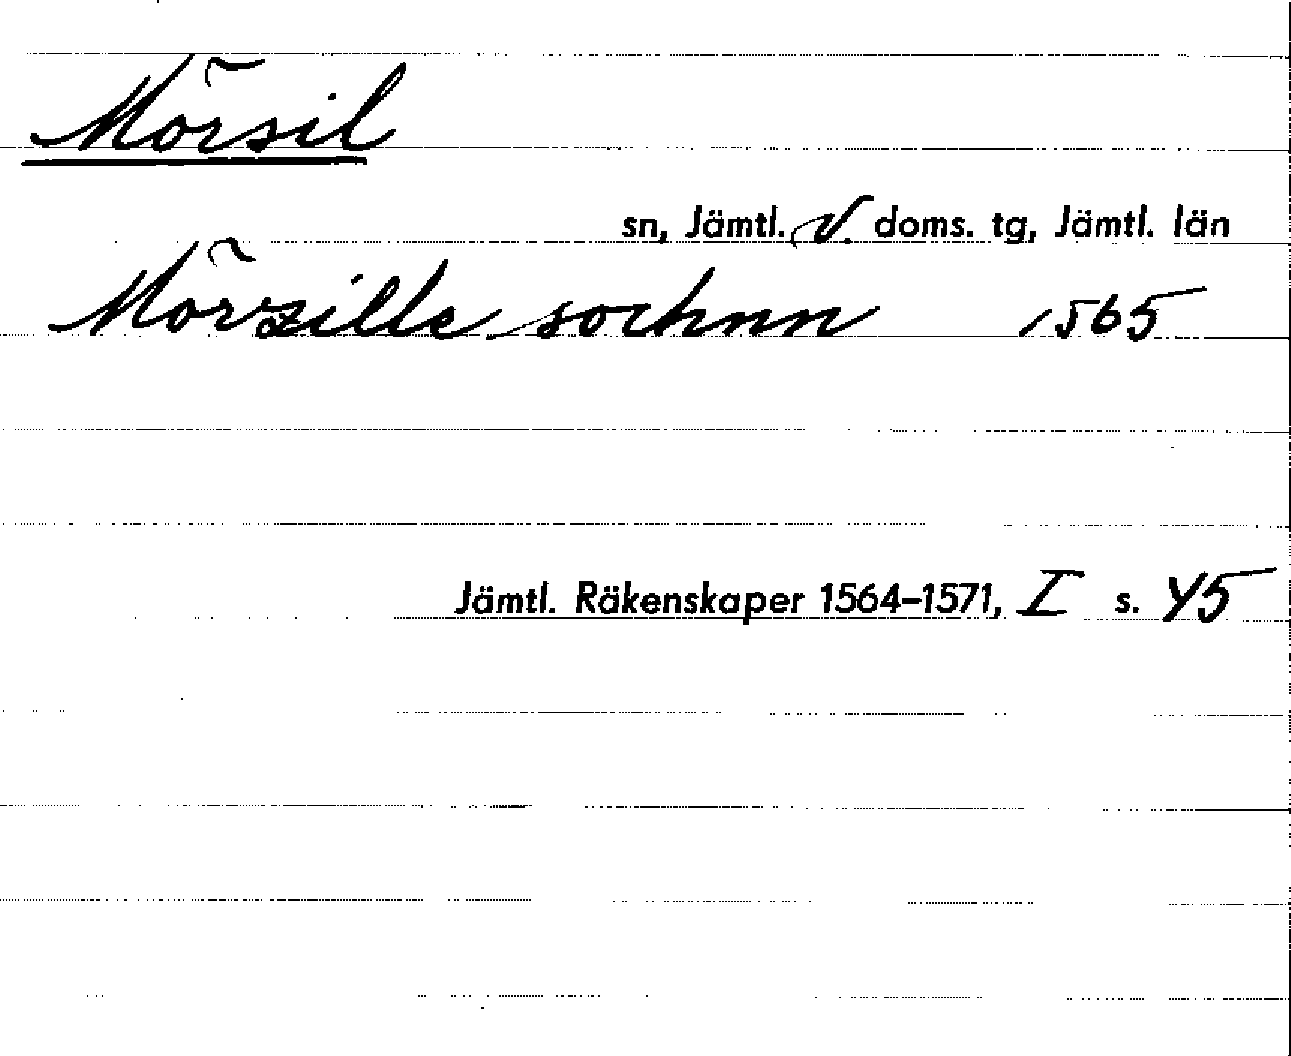 Mörsil
sn, Jämtl. V. doms. tg, Jämtl. län
Mörzille sochnn 1565
Jämtl. Räkenskaper 1564–1571, I s. 45